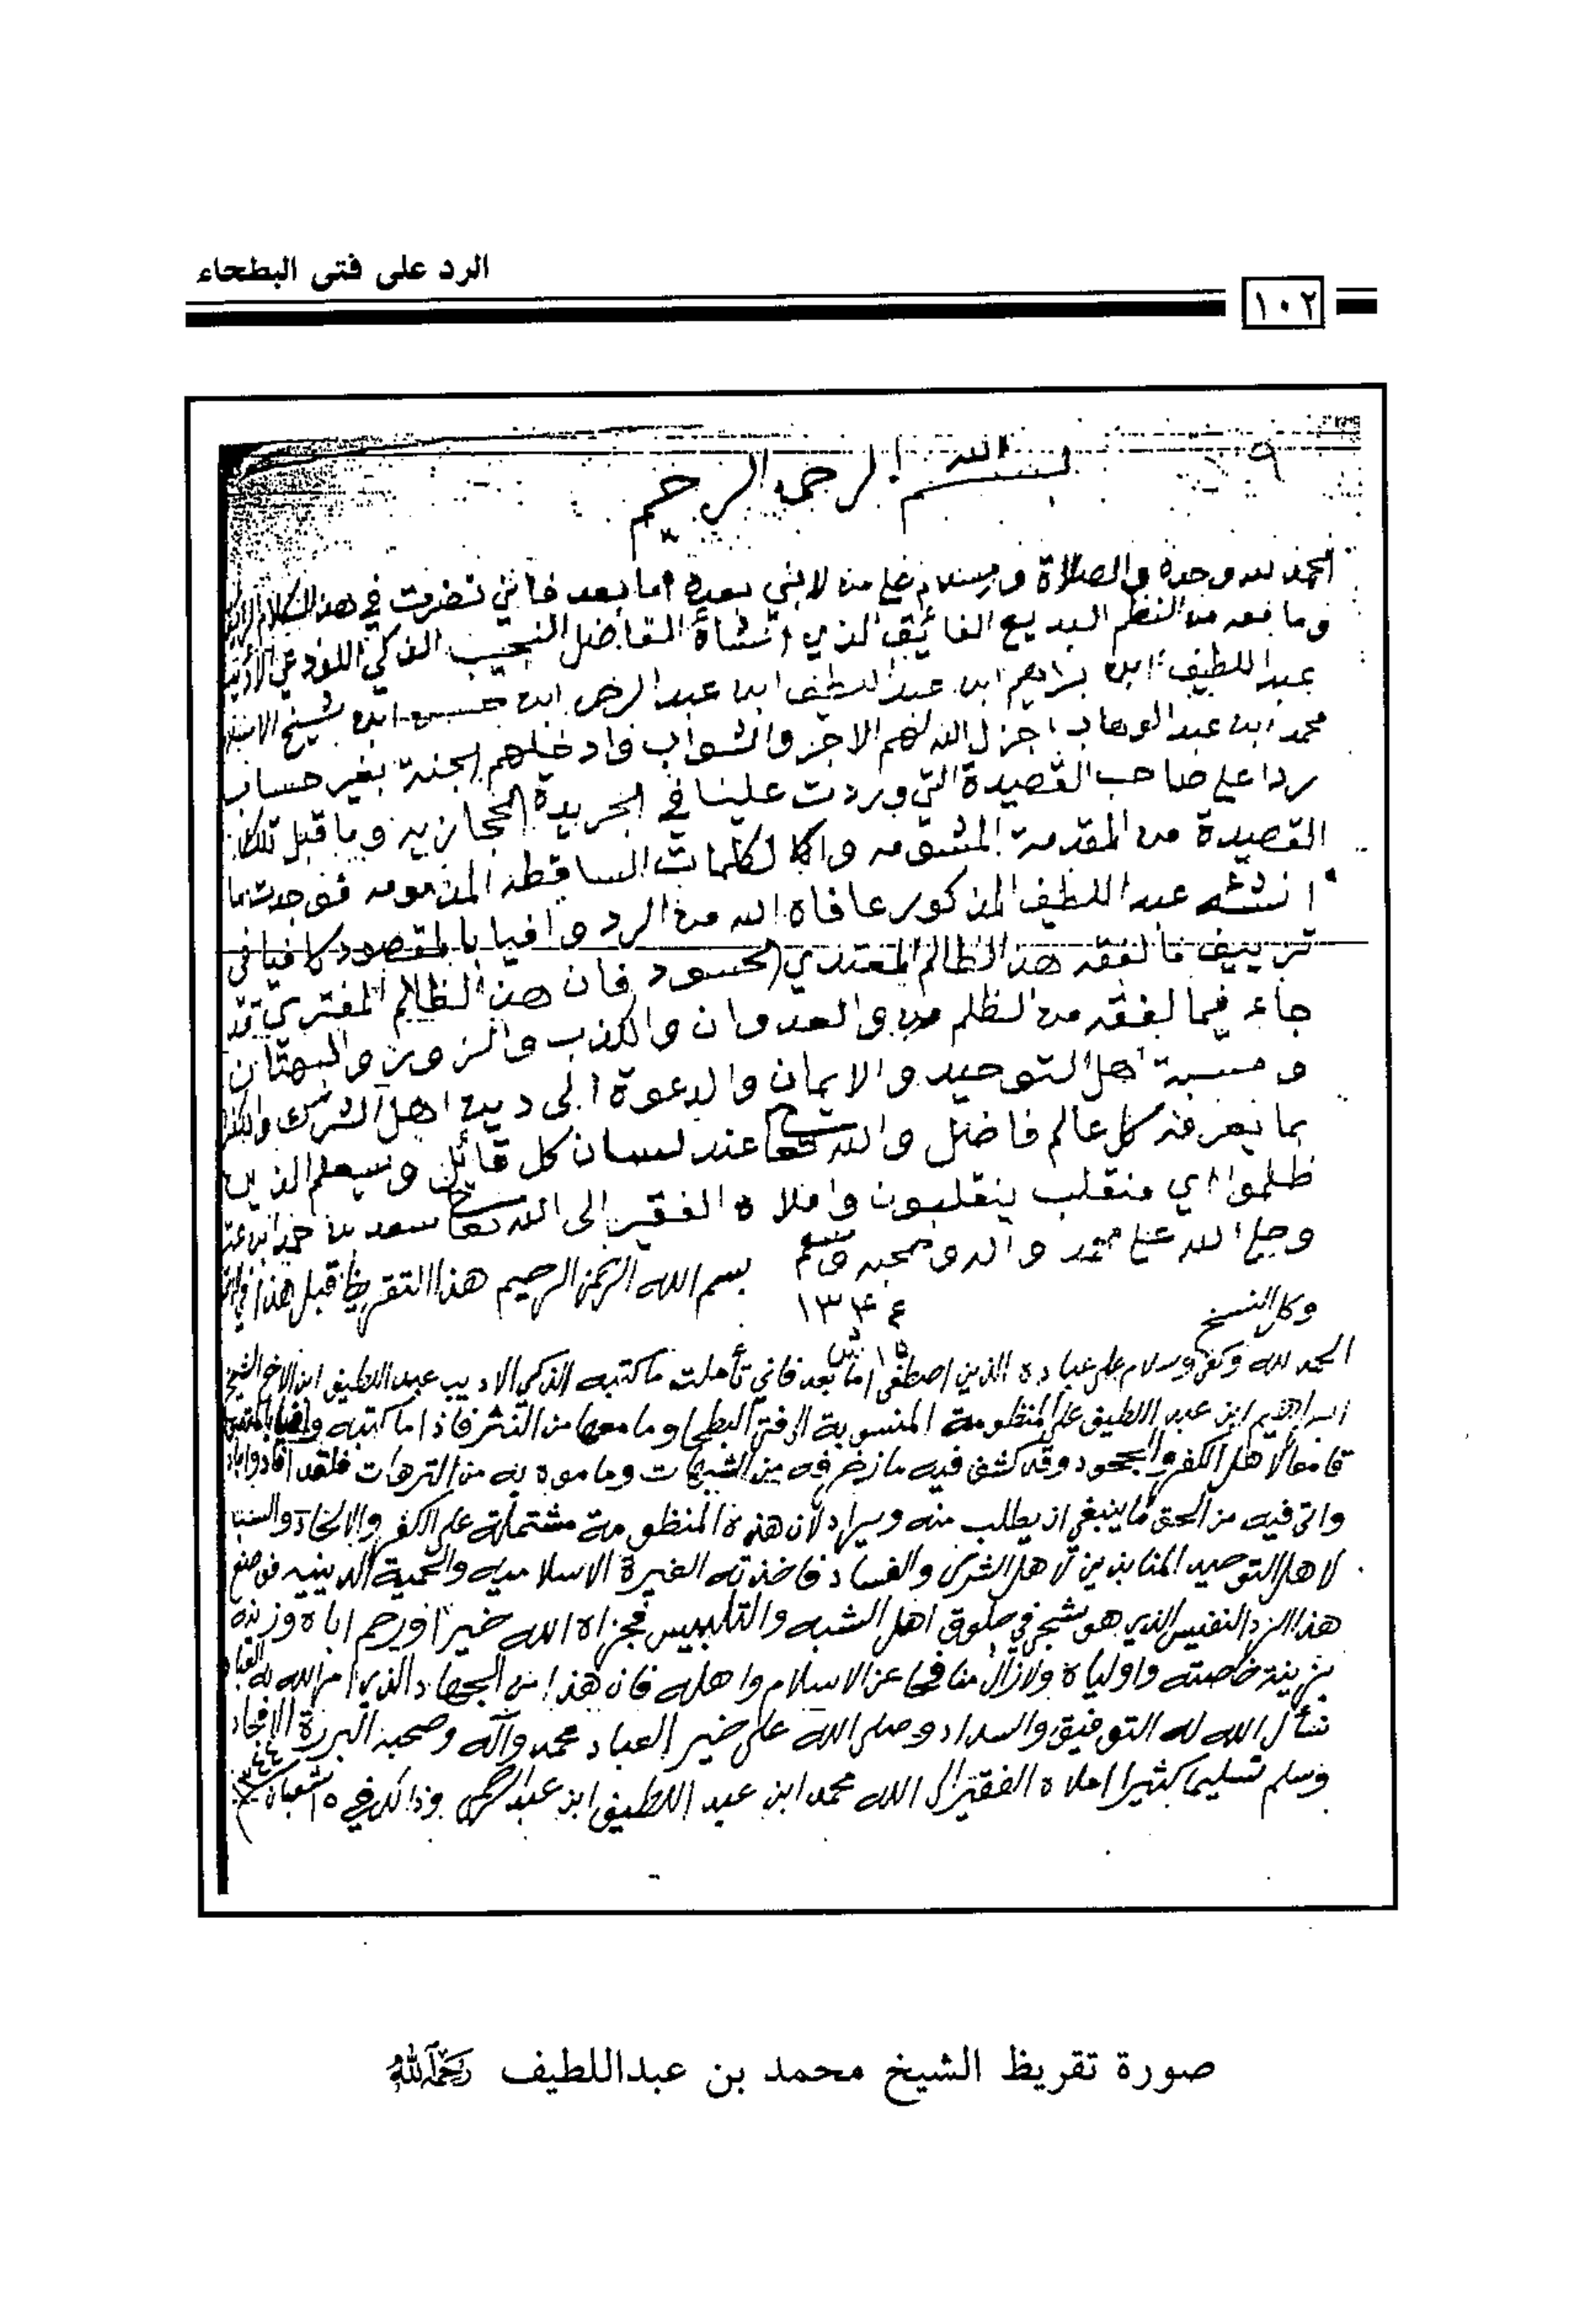 الرد على فتى البطحاء
١٠٢
٩
بسم الله الرحمن الرحيم
الحمد لله وحده والصلاة والسلام على من لا نبي بعده اما بعد فاني نضرت في هذا الكلام
وما معه من النظم البديع الفائق الذي انشأه الفاضل النجيب الذكي اللوذعي الأديب
عبد اللطيف ابن براهيم ابن عبد اللطيف ابن عبد الرحمن ابن حسن ابن شيخ الاسلام
محمد ابن عبد الوهاب اجزل الله لهم الاجر والثواب وادخلهم الجنة بغير حساب
ردا على صاحب القصيدة التي وردت علينا في الجريدة الحجازيه وما قبل تلك
القصيدة من المقدمة المشومه والكلمات الساقطه المذمومه فوجدت ما
انشئه عبد اللطيف المذكور عافاه الله من الرد وافيا بالمقصود كافيا في
تزييف ما لفقه هذا الظالم المعتدي الحسود فان هذا الظالم المفتري قد
جاء فيما لفقه من الظلم والعدوان والكذب والزور والبهتان
ومسبة اهل التوحيد والايمان والدعوة الى دين اهل الشرك والكفر
بما يعرفه كل عالم فاضل والله تعالى عند لسان كل قائل وسيعلم الذين
ظلموا اي منقلب ينقلبون واملاه الفقير الى الله تعالى سعد بن حمد ابن عتيق
وصلى الله على محمد واله وصحبه وسلم
١٣٤٤
١٥ ش
بسم الله الرحمن الرحيم هذا التقريظ قبل هذا في
وكل النسخ
الحمد لله وكفى وسلام على عباده الذين اصطفى اما بعد فاني تأملت ما كتبه الذكي الاديب عبد اللطيف ابن الاخ الشيخ
ابراهيم ابن عبد اللطيف على المنظومة المنسوبة الى فتى البطحا وما معها من النثر فاذا ما كتبه وافيا بالمقصود
قامعا لأهل الكفر والجحود وقد كشف فيه ما زخرفه من الشبهات وما موه به من الترهات فلقد افاد واجاد
واتى فيه من الحق ما ينبغي ان يطلب منه ويراد لأن هذه المنظومة مشتملة على الكفر والالحاد والسباب
لاهل التوحيد المنابذين لاهل الشرك والفساد فاخذته الغيرة الاسلاميه والحمية الدينيه فوضع
هذا الرد النفيس الذي هو شجى في حلوق اهل الشبه والتلبيس فجزاه الله خيرا ورحم اباه وزينه
بزينة خاصته واولياه ولازال منافحا عن الاسلام واهله فان هذا من الجهاد الذي امر الله به العباد
نسأل الله له التوفيق والسداد وصلى الله على خير العباد محمد وآله وصحبه البررة الامجاد
وسلم تسليما كثيرا املاه الفقير الى الله محمد ابن عبد اللطيف ابن عبد الرحمن وذالك في ١٥ شعبان ١٣٤٤
صورة تقريظ الشيخ محمد بن عبداللطيف رحمه الله